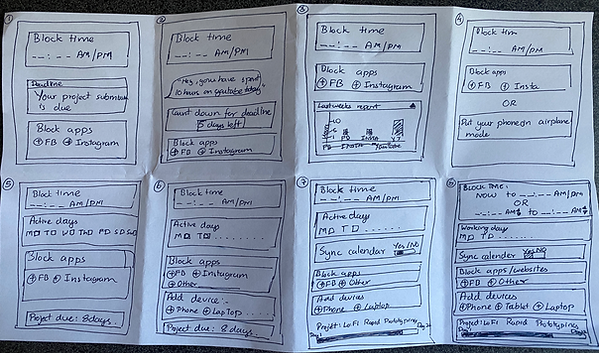 ①
Block time
--:-- AM/PM
Deadline
Your project submission
is due
Block apps
⊕FB ⊕Instagram
②
Block time
--:-- AM/PM
"Hey, you have spent
10 hours on youtube today"
Count down for deadline
5 days left
Block apps
⊕FB ⊕Instagram
③
Block time
--:-- AM/PM
Block apps
⊕FB ⊕Instagram
Last weeks report
FB Insta YT
FB Insta YouTube
④
Block time
--:-- AM/PM
Block apps
⊕FB ⊕Insta
OR
Put your phones in airplane
mode
⑤
Block time
--:-- AM/PM
Active days
Block apps
⊕FB ⊕Instagram
Project due: 8days.
⑥
Block time
--:-- AM/PM
Active days
M□ T□ .......
Block apps
⊕FB ⊕Instagram
⊕Other
Add device:
⊕Phone ⊕Laptop
Project due: 8 days.
⑦
Block time
--:-- AM/PM
Active days
M□ T□ .......
Sync calendar Yes/No
Block apps
⊕FB ⊕Other
Add devices
⊕Phone ⊕Laptop
Project: LoFi Rapid Prototyping
⑧
BLOCK TIME:
NOW to --:-- AM/PM
OR
--:-- AM to --:-- AM
Working days
M□ T□ .......
Sync calender Yes/No
Block apps/websites
⊕FB ⊕Other
Add devices
⊕Phone ⊕Tablet ⊕Laptop
Project: LoFi Rapid Prototyping